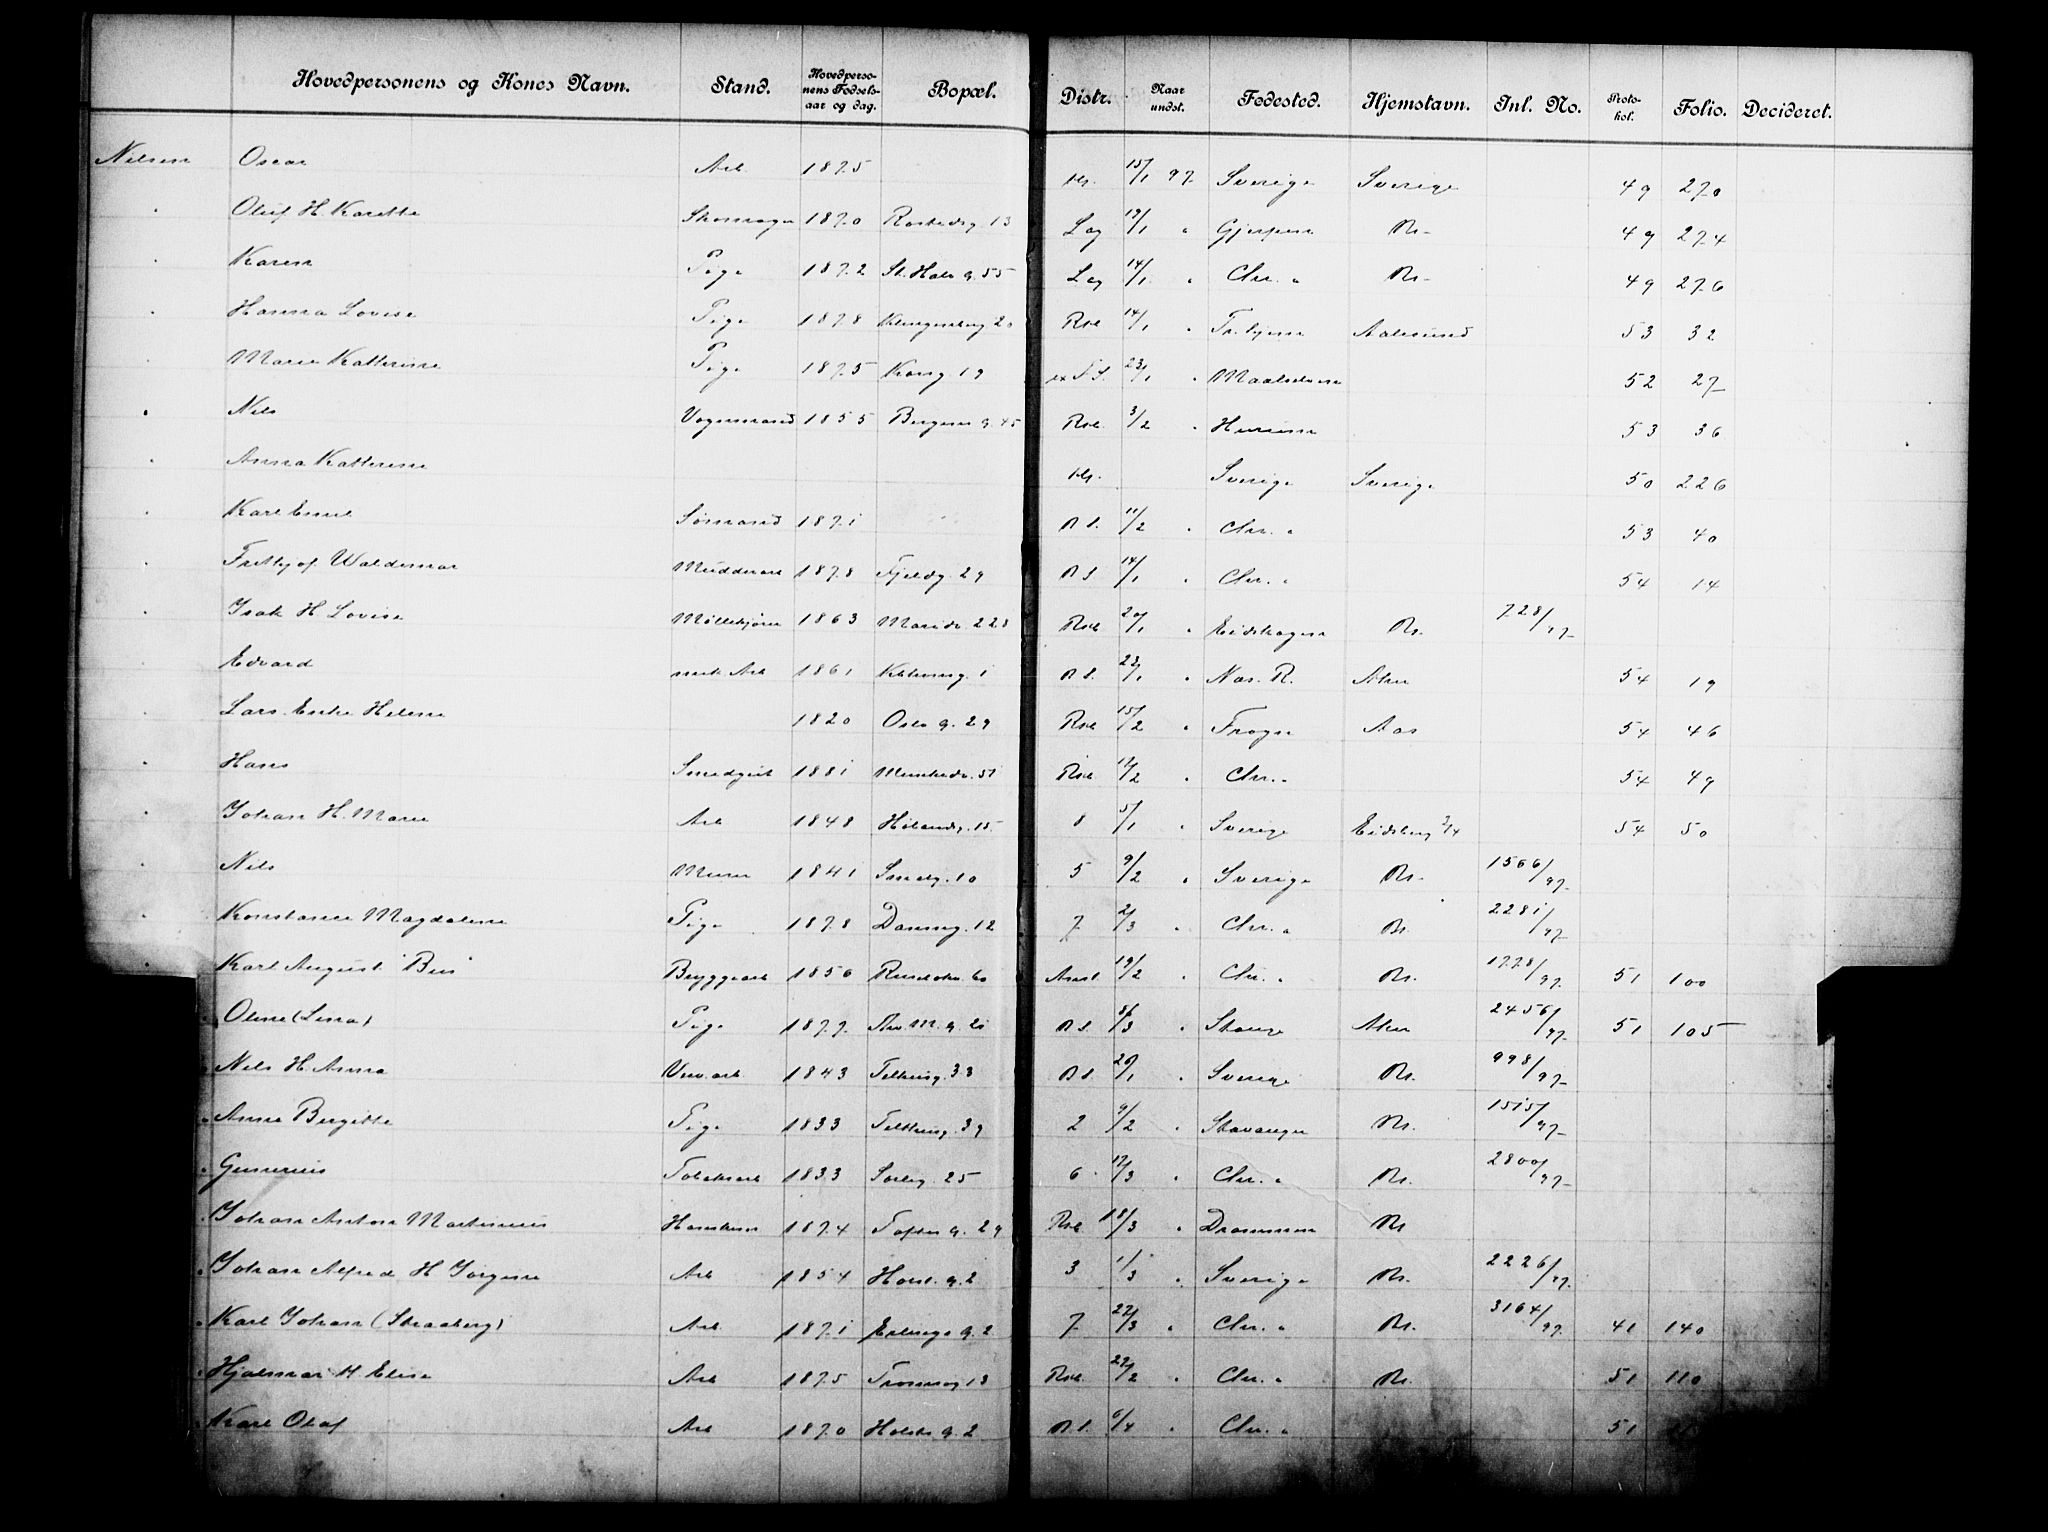 Hovedpersonens og Kones Navn. Stand. Hovedperso-nens Fødsels-aar og dag. Bopæl. Distr. Naar undst. Fødested. Hjemstavn. Inl. No. Proto-kol. Folio. Decideret.
Nilsen Oscar Arb. 1875 15/1 97 Sverige Sverige 49 270
" Oluf H. Karette Skomager 1870 13 Lag 19/1 " Gjerpen 49 274
" Karen Pige 1872 St. Hals g. 55 Lag 14/1 " Chr. " 49 276
" Hanna Lovise Pige 1878 Klingenberg 20 Rst. 14/1 " Tr.hjem Aalesund 53 32
" Marie Katterine Pige 1875 Kong. 19 23/1 " Maalselven 52 27
" Nils Vognmand 1855 Bergens g. 45 Rst. 3/2 " Hurum 53 36
" Anna Katterine Sverige Sverige 50 226
" Karl Emil Sømand 1871 11/2 " Chr. " 53 40
" Frithjof Waldemar Mudderarb 1878 Fjeldg. 29 14/1 " Chr. " 54 14
" Isak H. Lovise Møllekjører 1863 Maridv. 228 Rst. 20/1 " Eidskogen 728/97
" Edvard 1861 23/1 " Nes. R. Aker 54 19
" Lars. Enke Helene 1820 Oslo g. 29 Rst. 15/2 " Frogn Aas 54 46
" Hans Smedgut 1881 Munkedv. 51 Rst. 12/2 " Chr. " 54 49
" Johan H. Marie Arb 1848 15 8 5/1 " Sverige Eidsberg 54 50
" Nils Murer 1841 Smedg. 10 5 9/2 " Sverige 1566/97
" Konstance Magdalene Pige 1878 Dannevg. 12 7 2/3 " Chr. " 2281/97
" Karl August "Bus" Bryggearb 1856 Ruseløkv. 60 19/2 " Chr. " 1778/97 51 100
" Oline (Lina) Pige 1877 8/3 " Stange Aker 2456/97 51 105
" Nils H. Anna 1843 Telthusg. 33 20/1 " Sverige 998/97
" Anne Bergitte Pige 1833 Telthusg. 39 2 9/2 " Stavanger 1515/97
" Gunerius Tobaksarb 1833 Sorlig. 25 6 12/3 " Chr. " 2800/97
" Johan Anton Martinius 1874 Toftes g. 29 Rst. 18/3 " Drammen
" Johan Alfred H. Jørgine Arb 1854 Holst. g. 2 3 1/3 " Sverige 2226/97
" Karl Johan (Straaberg) Arb. 1871 Erlings g. 2 7 22/3 " Chr. " 3164/97 41 140
" Hjalmar H. Elise Arb 1875 Tromsøg 13 Rst. 22/2 " Chr. " 51 110
" Karl Olaf Arb 1870 Holsts g. 2 6/4 " Chr. " 51